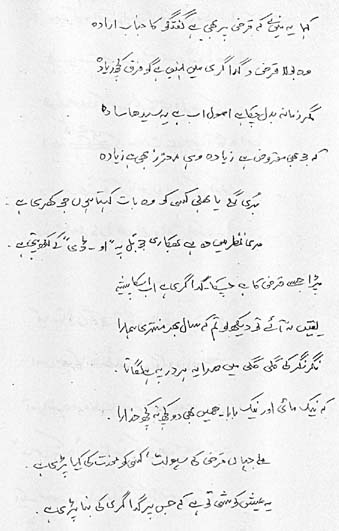 کہا یہ میں نے کہ قرض پر بھی ہے گفتگو کا جناب ارادہ
وہ بولا قرض و گداگری میں نہیں ہے گو فرق کچھ زیادہ
مگر زمانہ بدل چکا ہے اصول اب ہے یہ سیدھا سادا
کہ جو بھی مقروض ہے زیادہ وہی معزز بھی ہے زیادہ
بُری لگے یا بھلی کسی کو وہ بات کہتا ہوں جو کھری ہے
مری نظر میں وہ ہے بھکاری جو بل پہ "او۔ ڈی" کے لکھ پتی ہے
پڑا جسے قرض کا ہے چسکا گداگری ہے اب اسکا پیشہ
یقیں نہ آئے تو دیکھ لو تم کہ سال بھر منتری ہمارا
نگر نگر کی گلی گلی میں صدا یہ ہر در پہ ہے لگاتا
کہ نیک مائی اور نیک بابا۔ ہمیں بھی دو کچھ نہ کچھ خدارا
ملے جہاں قرض کی سہولت، کسی کو محنت کی کیا پڑی ہے
یہ عیش کوشی تو ہے کہ جس پر گداگری کی بنا پڑی ہے